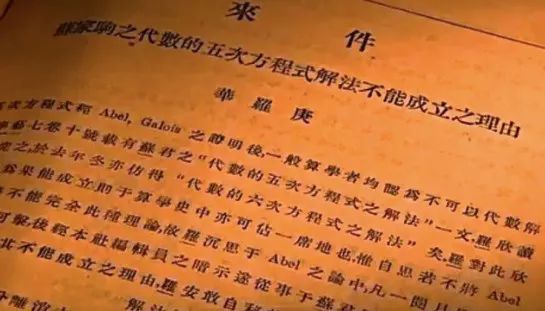 來件
蘇家駒之代數的五次方程式解法不能成立之理由
華羅庚
次方程式經 Abel, Galois 之證明後,一般算學者均認爲不可以代數解
學藝七卷十號載有蘇君之“代數的五次方程式之解法”一文,羅欣讀
之於去年冬亦仿得“代數的六次方程式之解法”矣,羅對此欣
爲果能成立則于算學史中亦可佔一席地也,惟自思若不將 Abel
不能完全此種理論,故羅沉思于 Abel 之論中,凡一閱月
後經本社編輯員之暗示遂從事于蘇君
其不能成立之理由,羅安敢自
解法